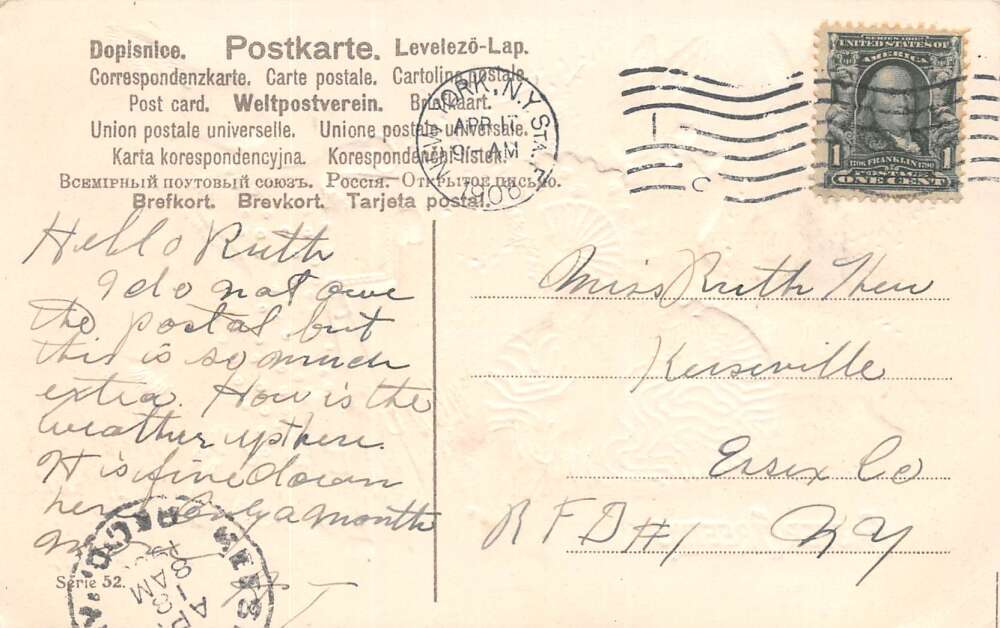 Dopisnice. Postkarte. Levelező-Lap.
Correspondenzkarte. Carte postale. Cartolina postale.
Post card. Weltpostverein. Briefkaart.
Union postale universelle. Unione postale universale.
Karta korespondencyjna. Korespondenčni listek.
Всемірный почтовый союзъ. Россія. Открытое письмо.
Brefkort. Brevkort. Tarjeta postal.
NEW YORK, N.Y. STA. L
APR 17
9-AM
1908
SERIES 1902
UNITED STATES OF
AMERICA
1 1706 FRANKLIN 1790 1
POSTAGE
ONE CENT
Hello Ruth
I do not owe
the postal but
this is so much
extra. How is the
weather up there.
It is fine down
here. Only a month
Miss Ruth
Keeseville
Essex Co
R F D #1 N Y
Serie 52.
REC'D.
AM